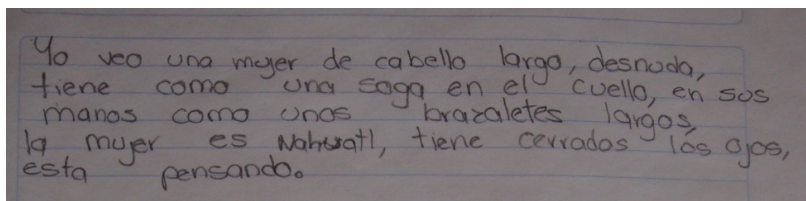 Yo veo una mujer de cabello largo, desnuda,
tiene como una soga en el cuello, en sus
manos como unos brazaletes largos,
la mujer es Nahuatl, tiene cerrados los ojos,
esta pensando.